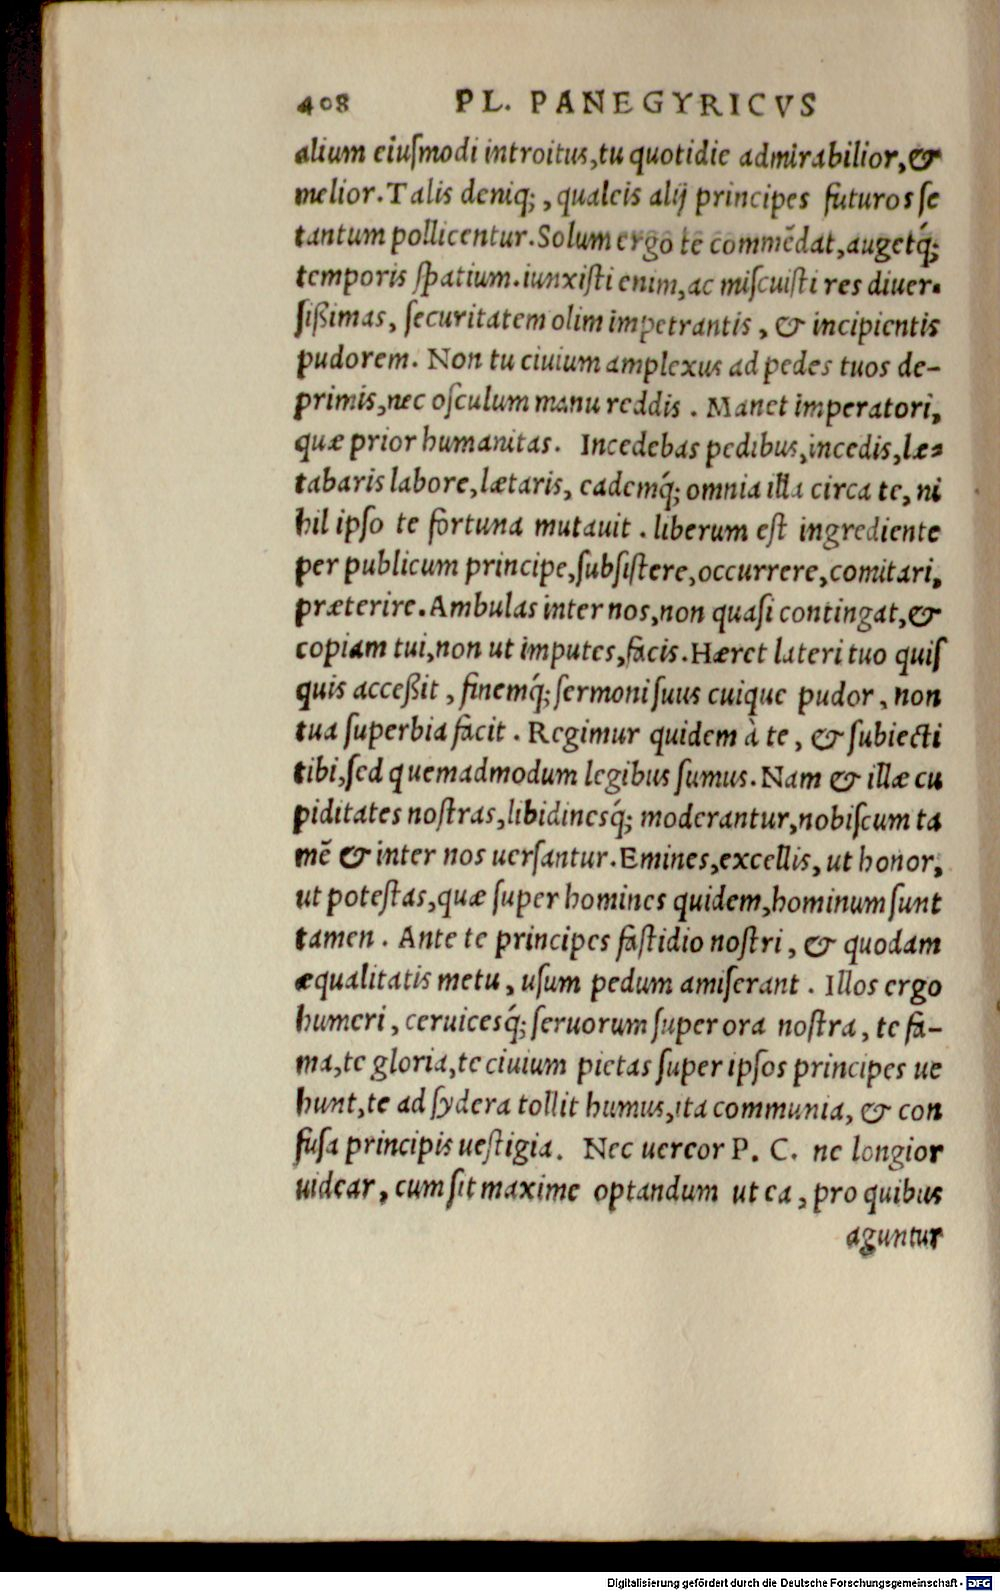 408 PL. PANEGYRICVS
alium eiuſmodi introitus,tu quotidie admirabilior,&
melior.Talis deniq;, qualeis alij principes futuros ſe
tantum pollicentur.Solum ergo te commēdat,augetq́;
temporis ſpatium.iunxiſti enim,ac miſcuiſti res diuer-
ſißimas, ſecuritatem olim impetrantis, & incipientis
pudorem. Non tu ciuium amplexus ad pedes tuos de-
primis,nec oſculum manu reddis. Manet imperatori,
quæ prior humanitas. Incedebas pedibus,incedis,læ-
tabaris labore,lætaris, eademq́; omnia illa circa te, ni
hil ipſo te fortuna mutauit. liberum eſt ingrediente
per publicum principe,ſubſiſtere,occurrere,comitari,
præterire.Ambulas inter nos,non quaſi contingat,&
copiam tui,non ut imputes,facis.Hæret lateri tuo quiſ
quis acceßit, finemq́; ſermoni ſuus cuique pudor, non
tua ſuperbia facit. Regimur quidem à te, & ſubiecti
tibi,ſed quemadmodum legibus ſumus.Nam & illæ cu
piditates noſtras,libidinesq́; moderantur,nobiſcum ta
mē & inter nos uerſantur.Emines,excellis, ut honor,
ut poteſtas,quæ ſuper homines quidem,hominum ſunt
tamen. Ante te principes faſtidio noſtri, & quodam
æqualitatis metu, uſum pedum amiſerant. Illos ergo
humeri, ceruicesq́; ſeruorum ſuper ora noſtra, te fa-
ma,te gloria,te ciuium pietas ſuper ipſos principes ue
hunt,te ad ſydera tollit humus,ita communia, & con
fuſa principis ueſtigia. Nec uereor P. C. ne longior
uidear, cum ſit maxime optandum ut ea, pro quibus
aguntur
Digitalisierung gefördert durch die Deutsche Forschungsgemeinschaft - DFG